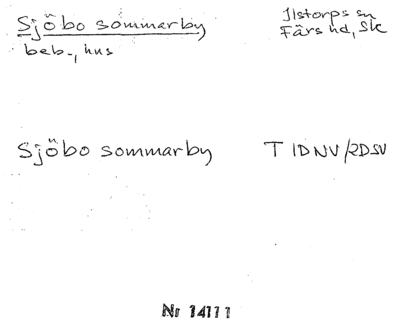 Sjöbo sommarby
Ilstorps sn
Färs hd, Sk
beb., hus
Sjöbo sommarby T 1DNV/2DSV
Nr 14111